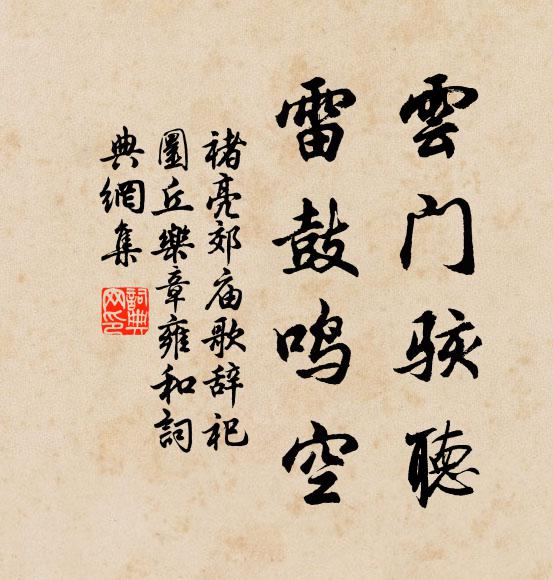 雲门骇聽
雷鼓鸣空
褚亮郊庙歌辞祀
圜丘樂章雍和詞
典網集
詞典
网印